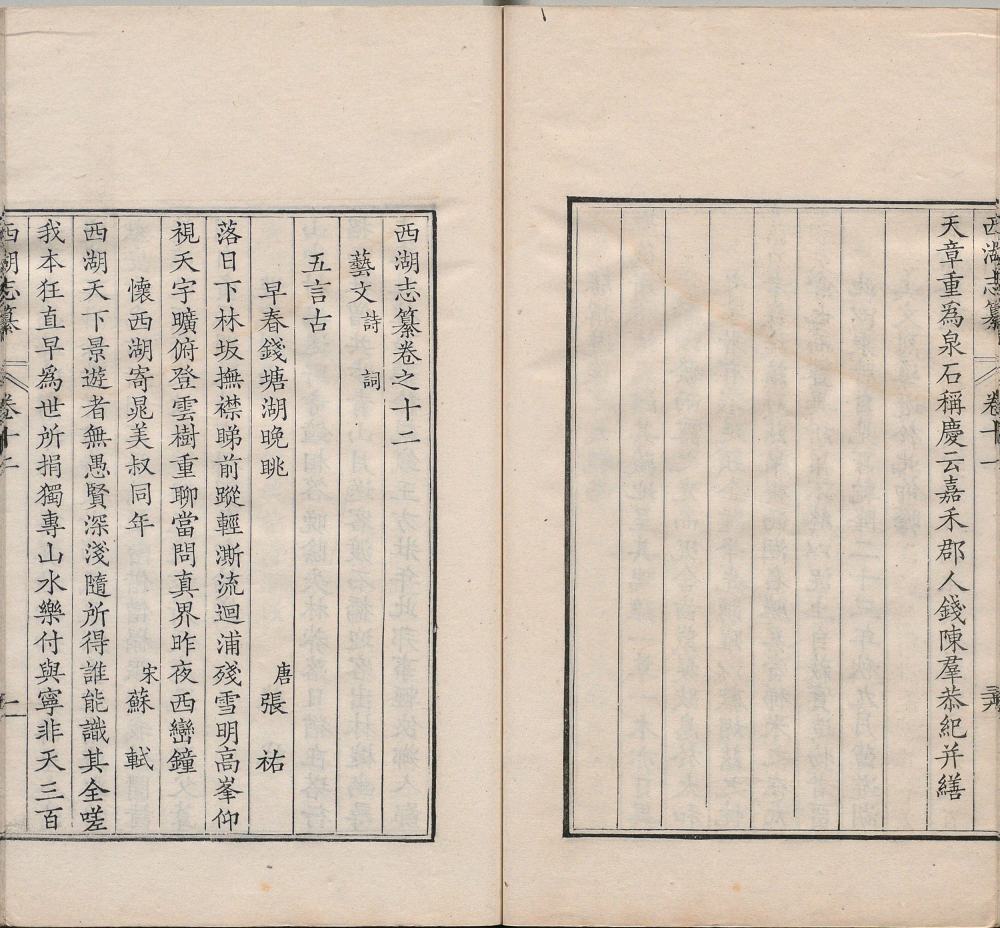 西湖志纂
卷十一
天章重爲泉石稱慶云嘉禾郡人錢陳羣恭紀并繕
西湖志纂卷之十二
藝文 詩 詞
五言古
早春錢塘湖晚眺 唐 張祐
落日下林坂撫襟睇前蹤輕澌流迴浦殘雪明高峯仰
視天宇曠俯登雲樹重聊當問真界昨夜西巒鐘
懷西湖寄晁美叔同年 宋 蘇軾
西湖天下景遊者無愚賢深淺隨所得誰能識其全嗟
我本狂直早爲世所捐獨專山水樂付與寧非天三百
西湖志纂
卷十二
一